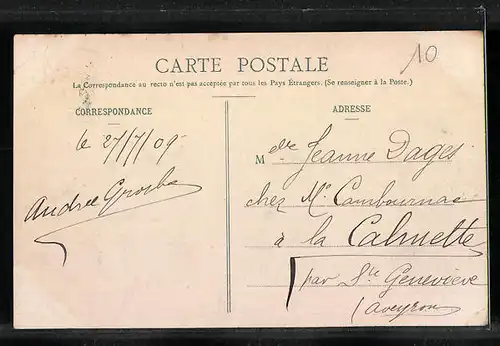 10
CARTE POSTALE
La Correspondance au recto n'est pas acceptée par tous les Pays Étrangers. (Se renseigner à la Poste.)
CORRESPONDANCE
le 27/7/09
Andrée
ADRESSE
Mdle Jeanne Dages
chez Mr Cambournac
à la Calmette
par Ste Geneviève
Aveyron